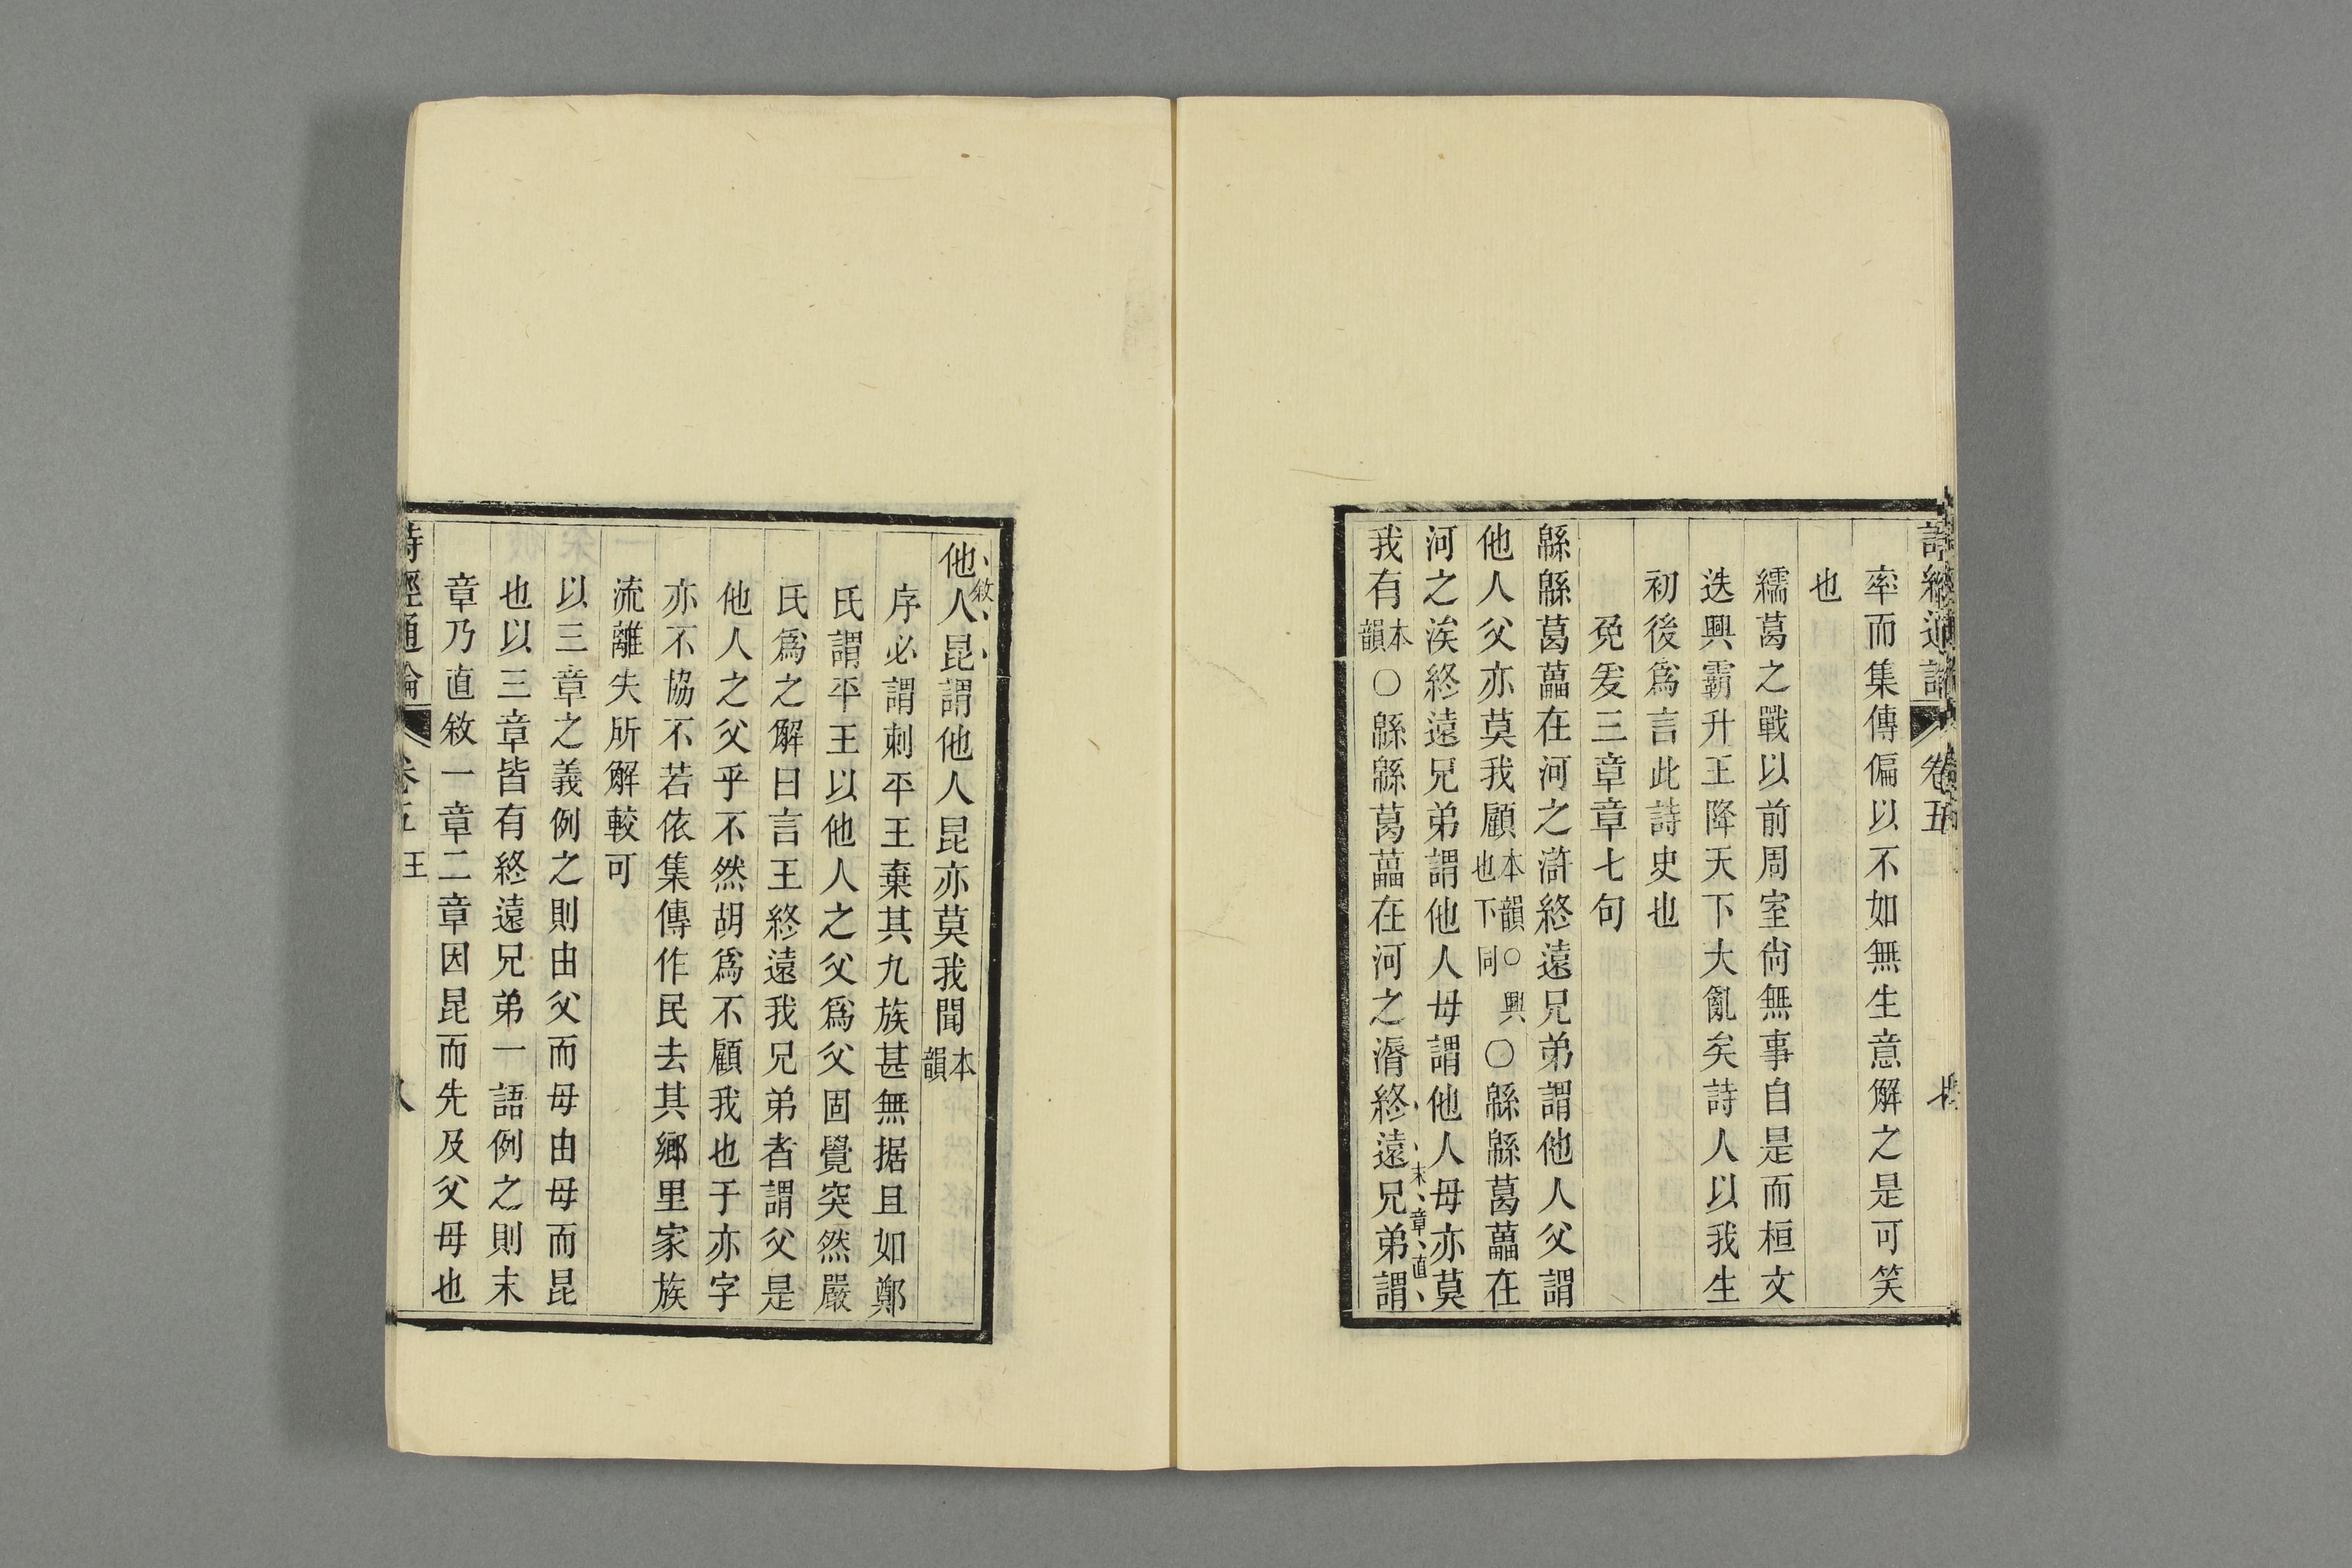 詩經通論 卷五
率而集傳偏以不如無生意解之是可笑
也
繻葛之戰以前周室尙無事自是而桓文
迭興霸升王降天下大亂矣詩人以我生
初後爲言此詩史也
兔爰三章章七句
緜緜葛藟在河之滸終遠兄弟謂他人父謂
他人父亦莫我顧本韻○興也下同○緜緜葛藟在
河之涘終遠兄弟謂他人母謂他人母亦莫
我有本韻○緜緜葛藟在河之漘終遠兄弟謂
末章直
敘
他人昆謂他人昆亦莫我聞本韻
序必謂刺平王棄其九族甚無据且如鄭
氏謂平王以他人之父爲父固覺突然嚴
氏爲之解曰言王終遠我兄弟者謂父是
他人之父乎不然胡爲不顧我也于亦字
亦不協不若依集傳作民去其鄉里家族
流離失所解較可
以三章之義例之則由父而母由母而昆
也以三章皆有終遠兄弟一語例之則末
章乃直敘一章二章因昆而先及父母也
詩經通論 卷五 王 八